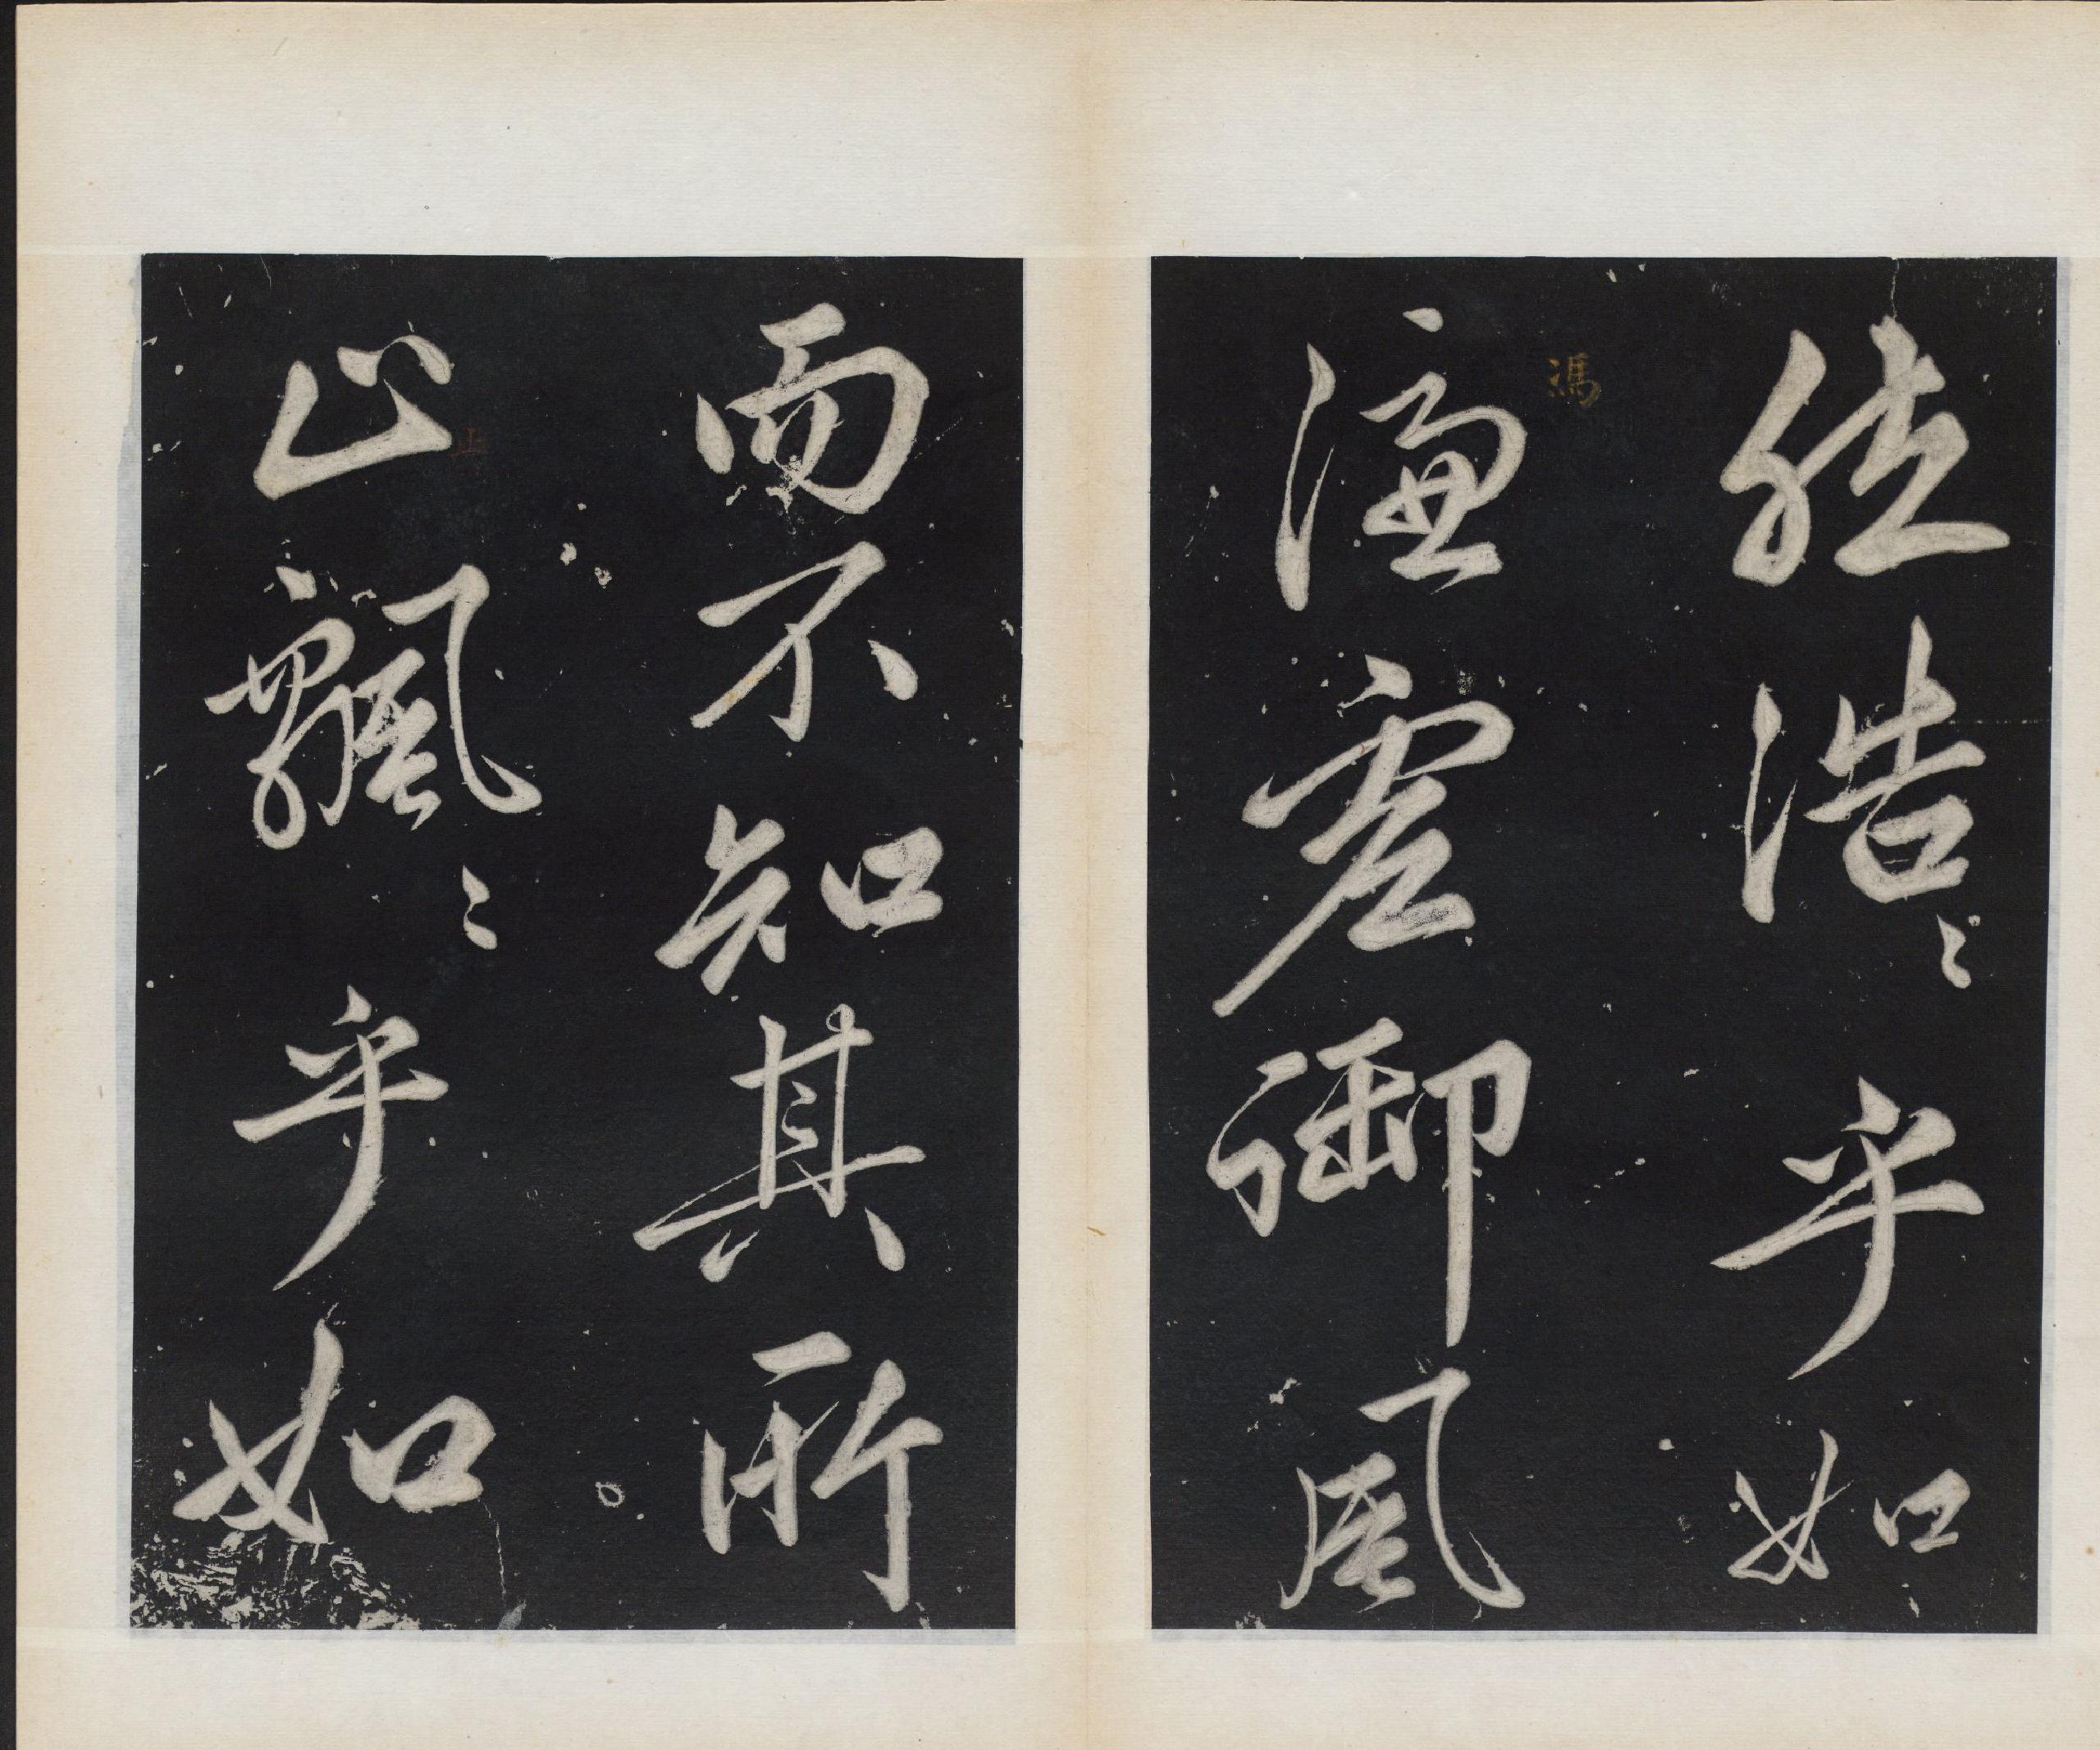 然浩〻乎如
馮虛御風
馮
而不知其所
止飄〻乎如